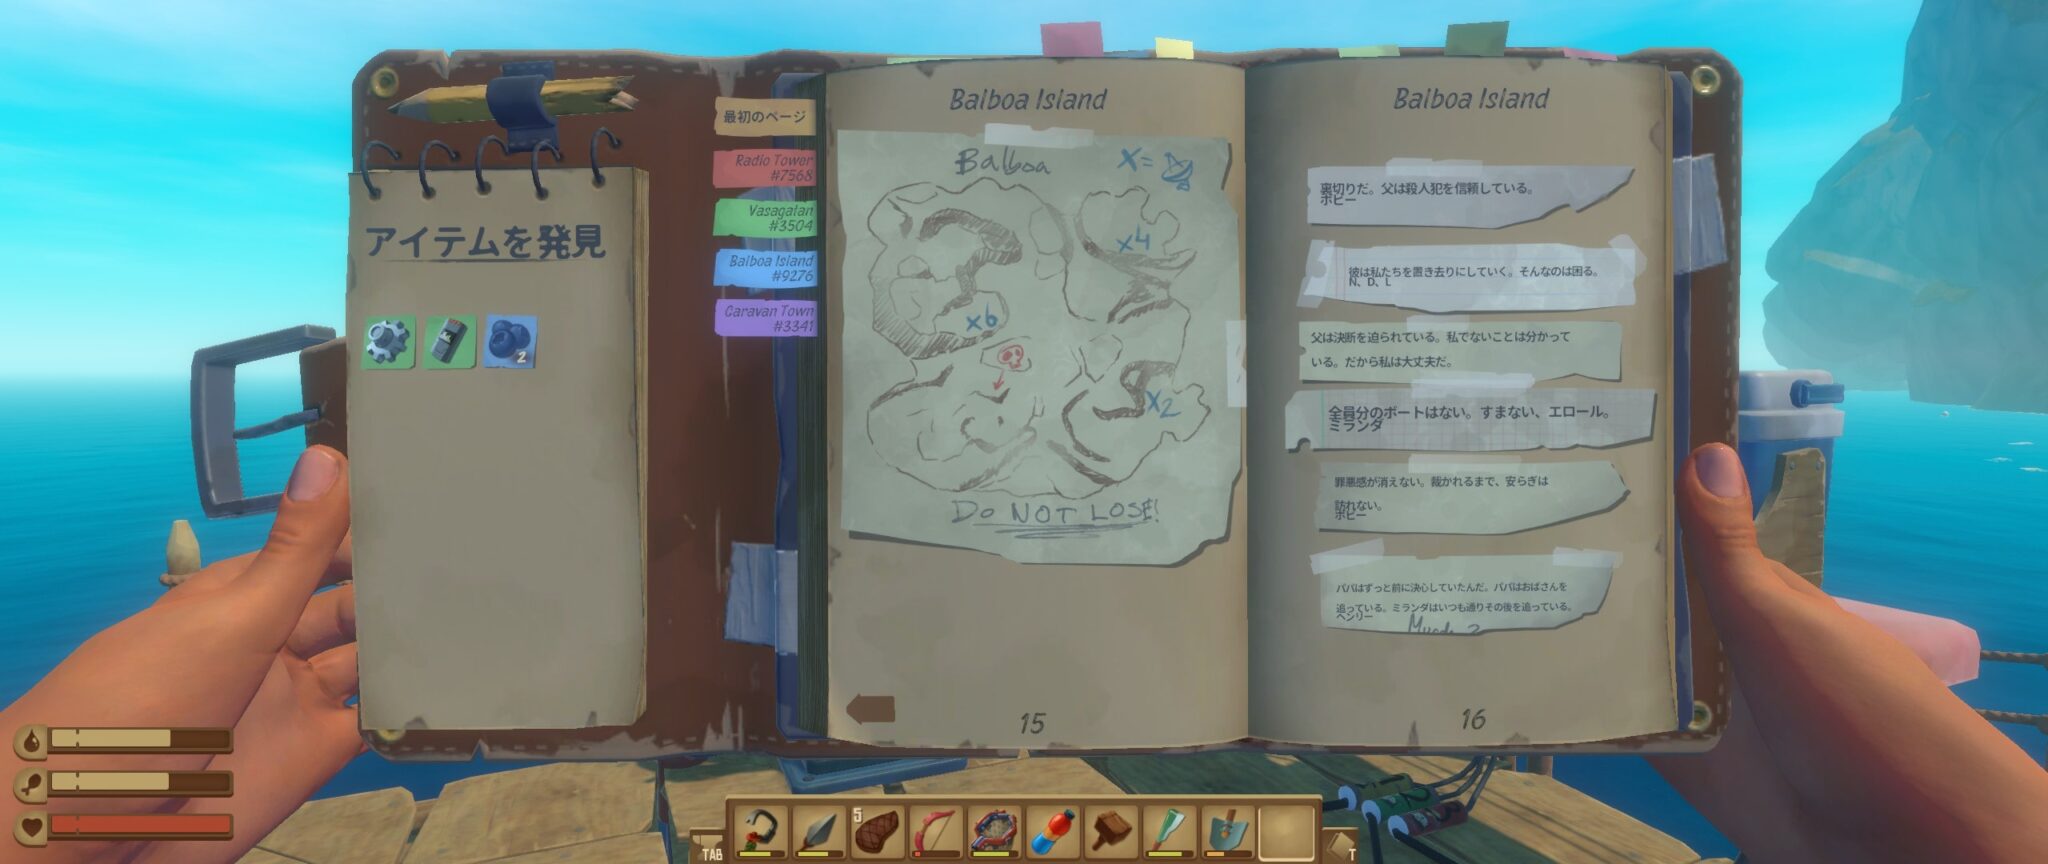 アイテムを発見
2
最初のページ
Radio Tower
#7568
Vasagatan
#3504
Balboa Island
#9276
Caravan Town
#3341
Balboa Island
Balboa
X=
x4
x6
x2
DO NOT LOSE!
15
Balboa Island
裏切りだ。父は殺人犯を信頼している。
ボビー
彼は私たちを置き去りにしていく。そんなのは困る。
N、D、L
父は決断を迫られている。私でないことは分かって
いる。だから私は大丈夫だ。
全員分のボートはない。すまない、エロール。
ミランダ
罪悪感が消えない。裁かれるまで、安らぎは
訪れない。
ボビー
パパはずっと前に決心していたんだ。パパはおばさんを
追っている。ミランダはいつも通りその後を追っている。
ヘンリー
16
TAB
5
T